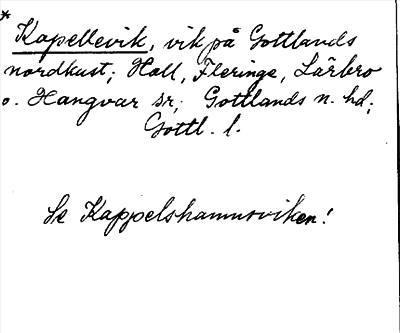 * Kapellevik, vik på Gottlands
nordkust; Hall, Fleringe, Lärbro
o. Hangvar sr; Gottlands n. hd;
Gottl. l.
Se Kappelshamnsviken!